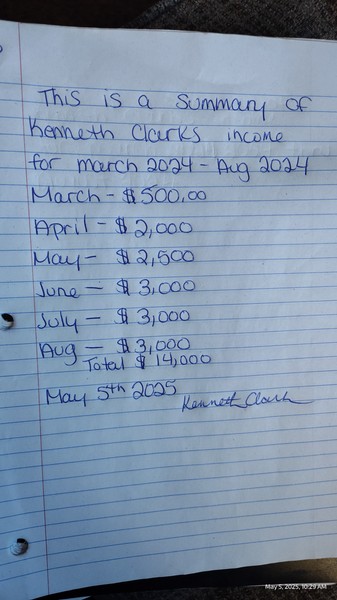 This is a Summary of
Kenneth Clarks income
for march 2024 - Aug 2024
March - $500.00
April - $2,000
May - $2,500
June - $3,000
July - $3,000
Aug - $3,000
Total $14,000
May 5th 2025
Kenneth Clark
May 5, 2025, 10:29 AM